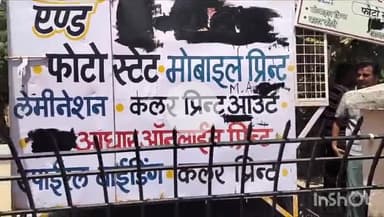 एण्ड
फोटो स्टेट • मोबाइल प्रिन्ट
लेमीनेशन • कलर प्रिन्ट आउट
M.A
आधार ऑनलाईन प्रिन्ट
स्पाइरल बाईडिंग • कलर प्रिन्ट •
InShOt